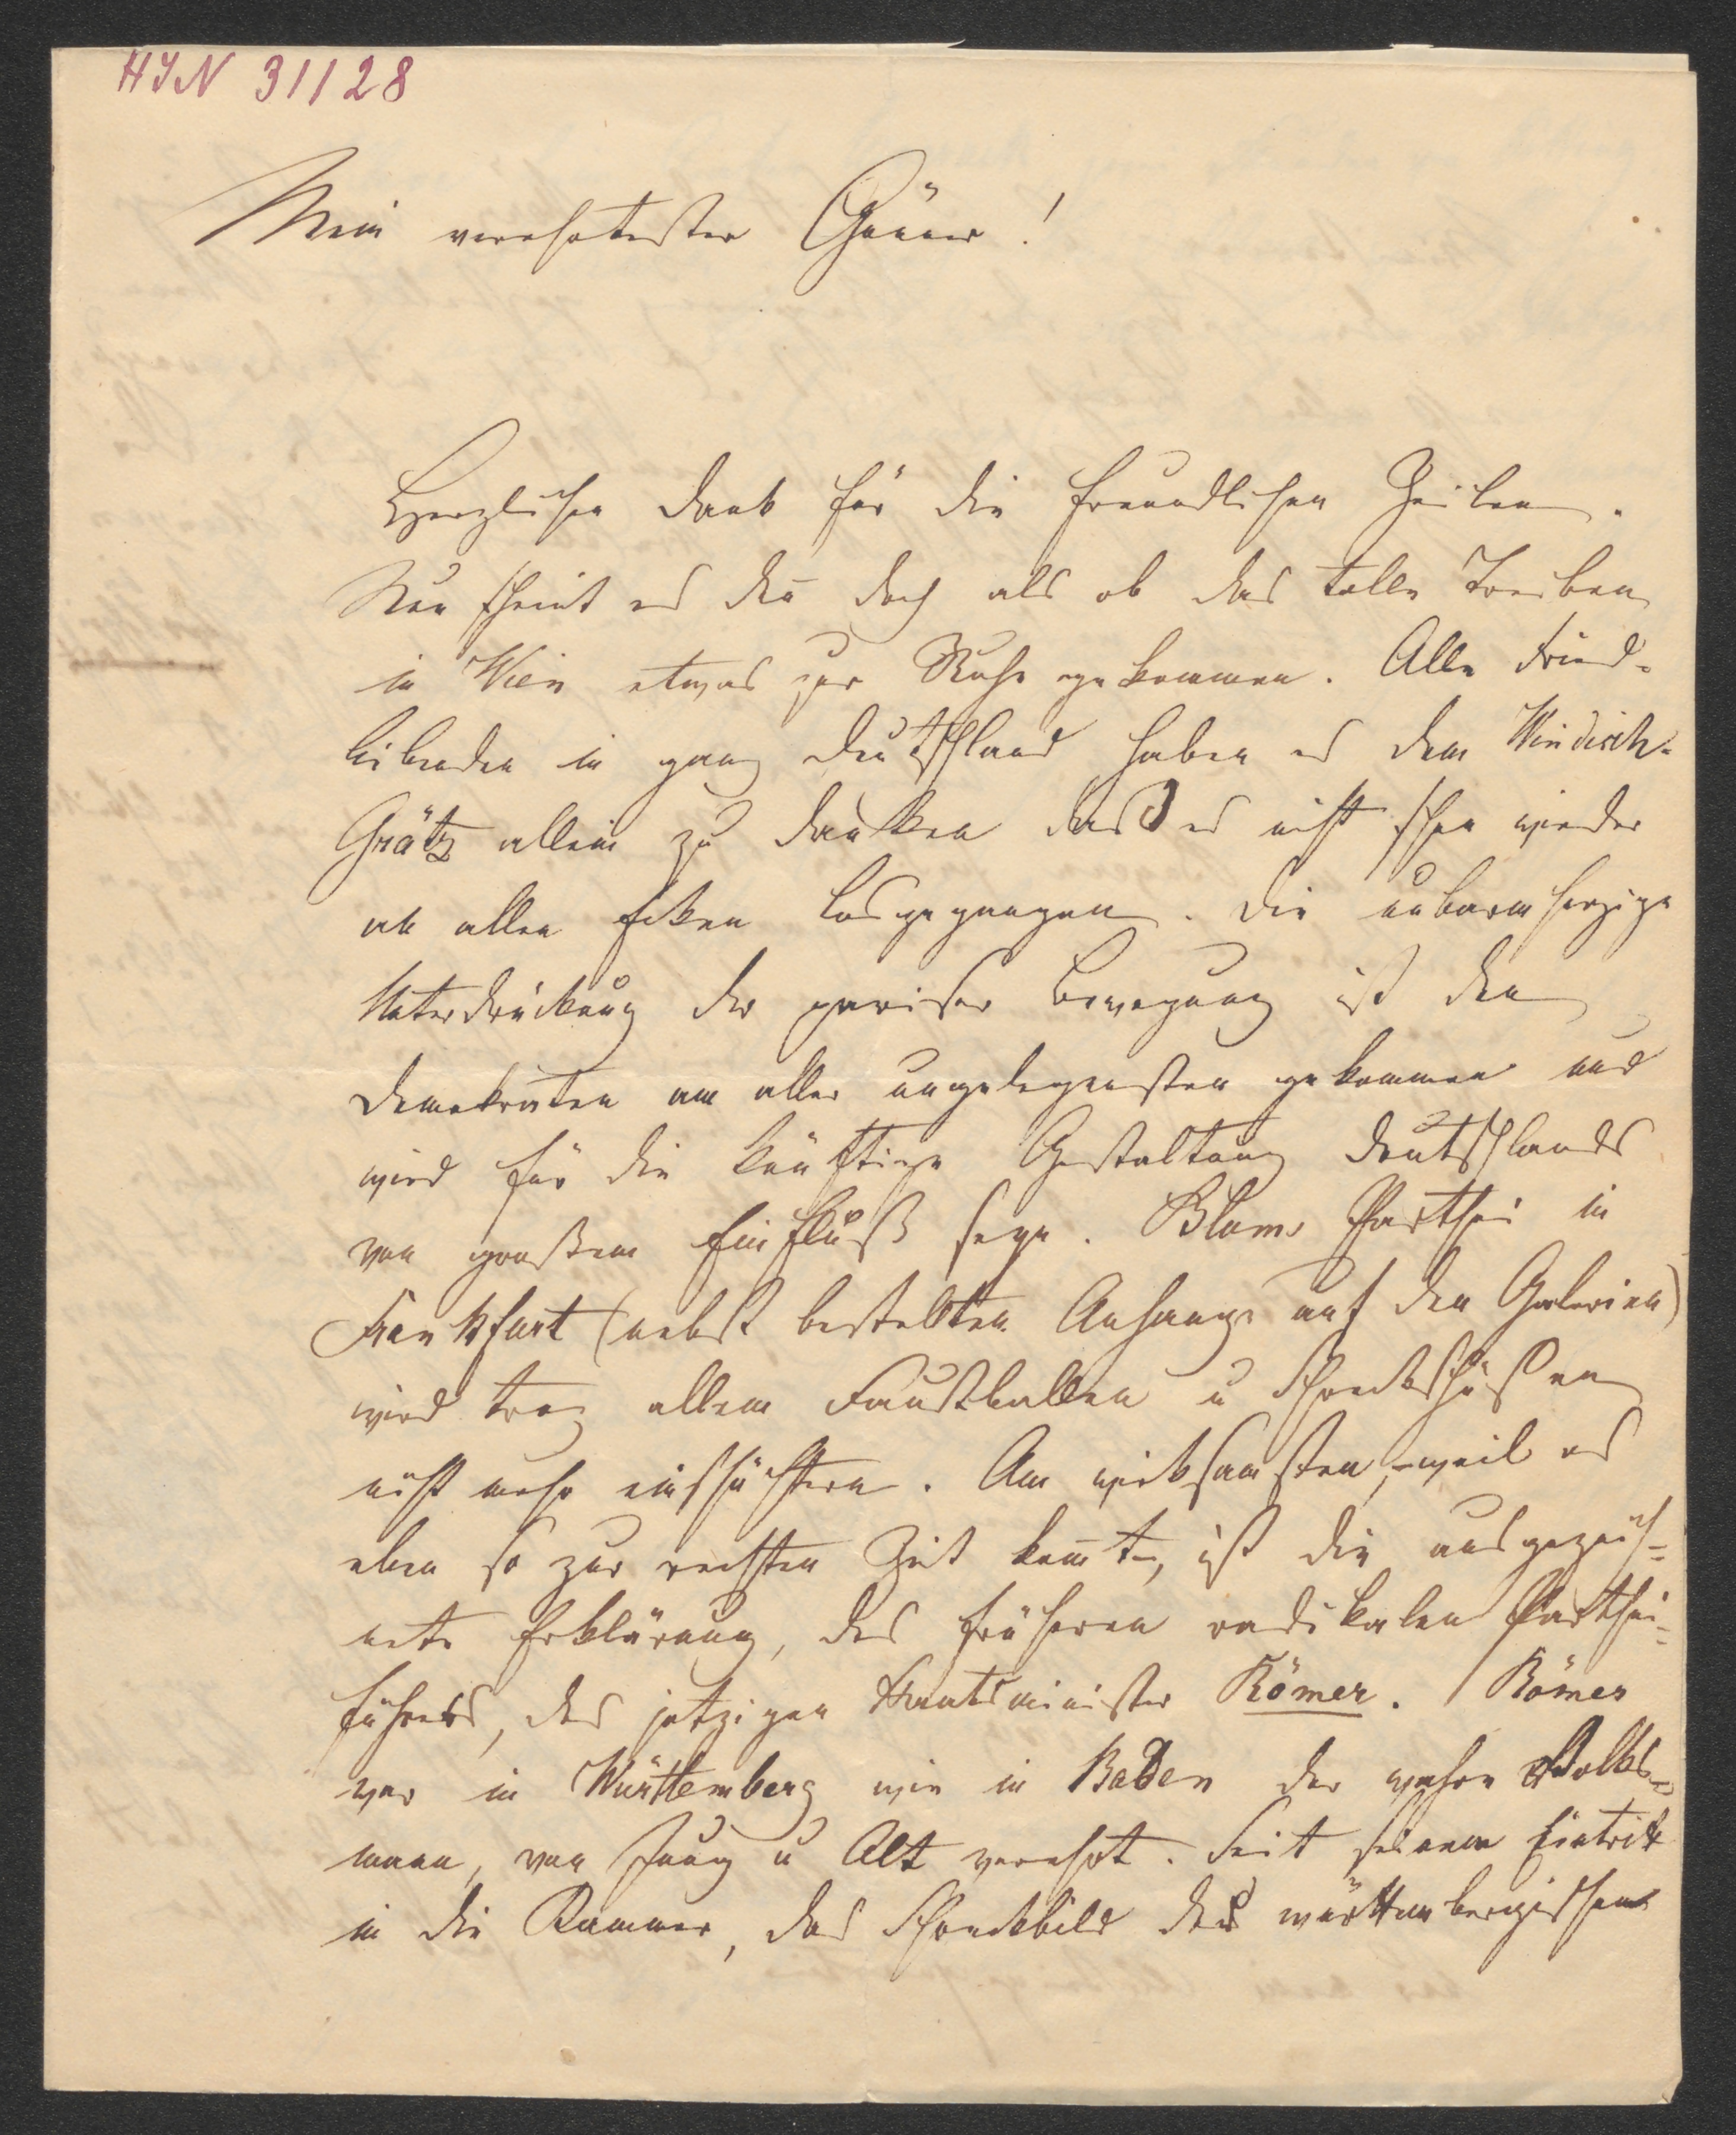 HIN 31128
Mein verehrtester Gönner!
Herzlichen Dank für die freundlichen Zeilen.
Nun scheint es den̄ doch als ob das tolle Treiben
in Wien etwas zur Ruhe gekommen. Alle Fried-
liebenden in ganz Deutschland haben es dem Windisch-
Grätz allein zu danken daß es nicht schon wieder
an allen Ecken losgegangen. Die unbarmherzige
Unterdrückung der pariser Bewegung ist den
Demokraten am aller ungelegensten gekommen und
wird für die künftige Gestaltung Deutschlands
von großem Einfluß seyn. Blums Parthei in
Frankfurt (nebst bestellten Anhange auf den Galerien)
wird troz allem Faustballen u Schreckschüßen
nicht mehr einschüchtern. Am wirksamsten, weil es
eben so zur rechten Zeit kom̄t, ist die ausgezeich-
nete Erklärung, des früheren radikalen Parthei-
führers, des jetzigen Staatsminister Römer. Römer
war in Württemberg wie in Baden der wahre Volks-
mann, von Jung u Alt verehrt. Seit seinem Eintritt
in die Kammer, das Schreckbild des württembergischen